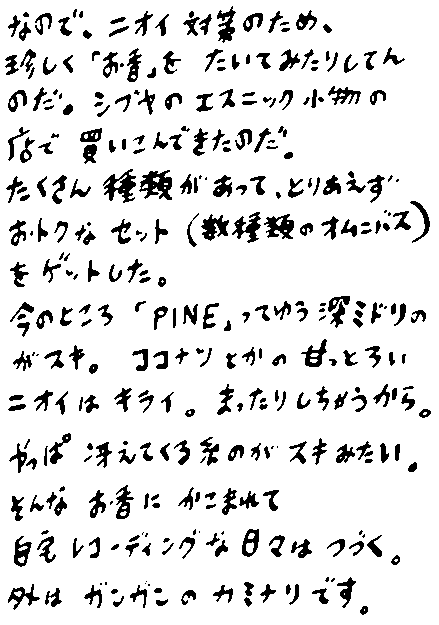 なので、ニオイ対策のため、
珍しく「お香」を たいてみたりしてん
のだ。シブヤのエスニック小物の
店で 買いこんできたのだ。
たくさん 種類があって、とりあえず
おトクな セット(数種類のオムニバス)
をゲットした。
今のところ 「PINE」ってゆう深ミドリの
がスキ。 ココナツとかの甘っとろい
ニオイは キライ。まったりしちゃうから。
やっぱ 冴えてくる系のが スキみたい。
そんな お香に かこまれて
自宅レコーディングな日々は つづく。
外は ガンガンの カミナリです。